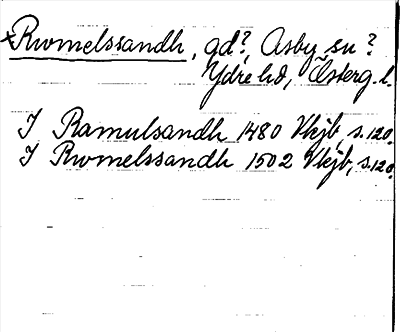 ×Rwmelssandh, gd?, Asby sn?
Ydre hd, Österg. l.
I Ramulsandh 1480 Vkjb, s. 120.
I Rwmelssandh 1502 Vkjb, s. 120.